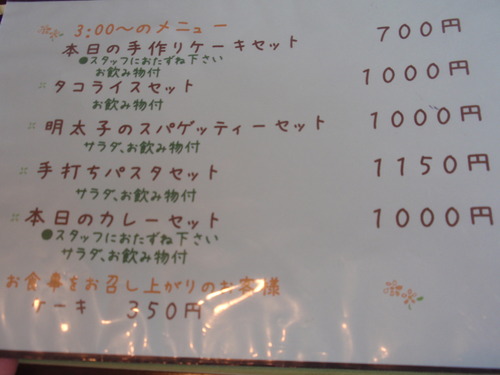 3:00〜のメニュー
本日の手作りケーキセット 700円
●スタッフにおたずね下さい
お飲み物付
タコライスセット 1000円
お飲み物付
明太子のスパゲッティーセット 1000円
サラダ、お飲み物付
手打ちパスタセット 1150円
サラダ、お飲み物付
本日のカレーセット 1000円
●スタッフにおたずね下さい
サラダ、お飲み物付
お食事をお召し上がりのお客様
ケーキ 350円